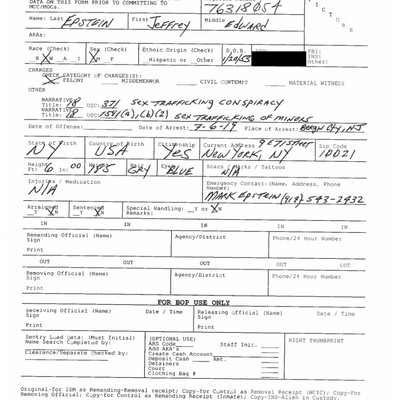 DATA ON THIS FORM PRIOR TO COMMITTING TO
MCC/MDCs.
76318054
Name: Last EPSTEIN First Jeffrey Middle Edward
AKAs:
Race (Check) Sex (Check) Ethnic Origin (Check) D.O.B. FBI:
B W A I M F Hispanic or Other 1/20/53 INS:
Other:
CHARGES
CHECK CATEGORY OF CHARGE(S):
X FELONY MISDEMEANOR CIVIL CONTEMPT MATERIAL WITNESS
OTHER
NARRATIVE
Title: 18 USC: 371 SEX TRAFFICKING CONSPIRACY
NARRATIVE
Title: 18 USC: 1591(a),(b)(2) SEX TRAFFICKING OF MINORS
Date of Offense: Date of Arrest: 7-6-19 Place of Arrest: NJ
State of Birth Country of Birth Citizenship Current Address 9 E 71 Street Zip Code
NY USA Yes New York, NY 10021
Height Weight Hair Eyes Scars / Marks / Tattoos
Ft 6 In 00 185 GRY BLUE N/A
Injuries / Medication Emergency Contact: (Name, Address, Phone
N/A Number)
MARK EPSTEIN 543-2432
Arraigned Sentenced Special Handling: Y or N
Y N Y N Remarks:
IN IN IN IN IN IN
Remanding Official (Name) Agency/District Phone/24 Hour Number
Sign
Print
OUT OUT OUT OUT OUT OUT
Removing Official (Name) Agency/District Phone/24 Hour Number
Sign
Print
FOR BOP USE ONLY
Receiving Official (Name) Date / Time Releasing Official (Name) Date / Time
Sign Sign
Print Print
Sentry Load Data: (Must Initial) (OPTIONAL USE) RIGHT THUMBPRINT
Name Search Completed by: ARS Code Staff Init.
Add AKA's
Clearance/Separatee Checked by: Create Cash Account
Deposit Cash Amt.
Detainers
Court
Clothing Bag #
Original-for ISM as Remanding-Removal receipt; Copy-for Control as Removal Receipt (NCIC); Copy-For
Removing Official; Copy-for Control as Remanding Receipt (Inmate); Copy-INS-Alien in Custody.